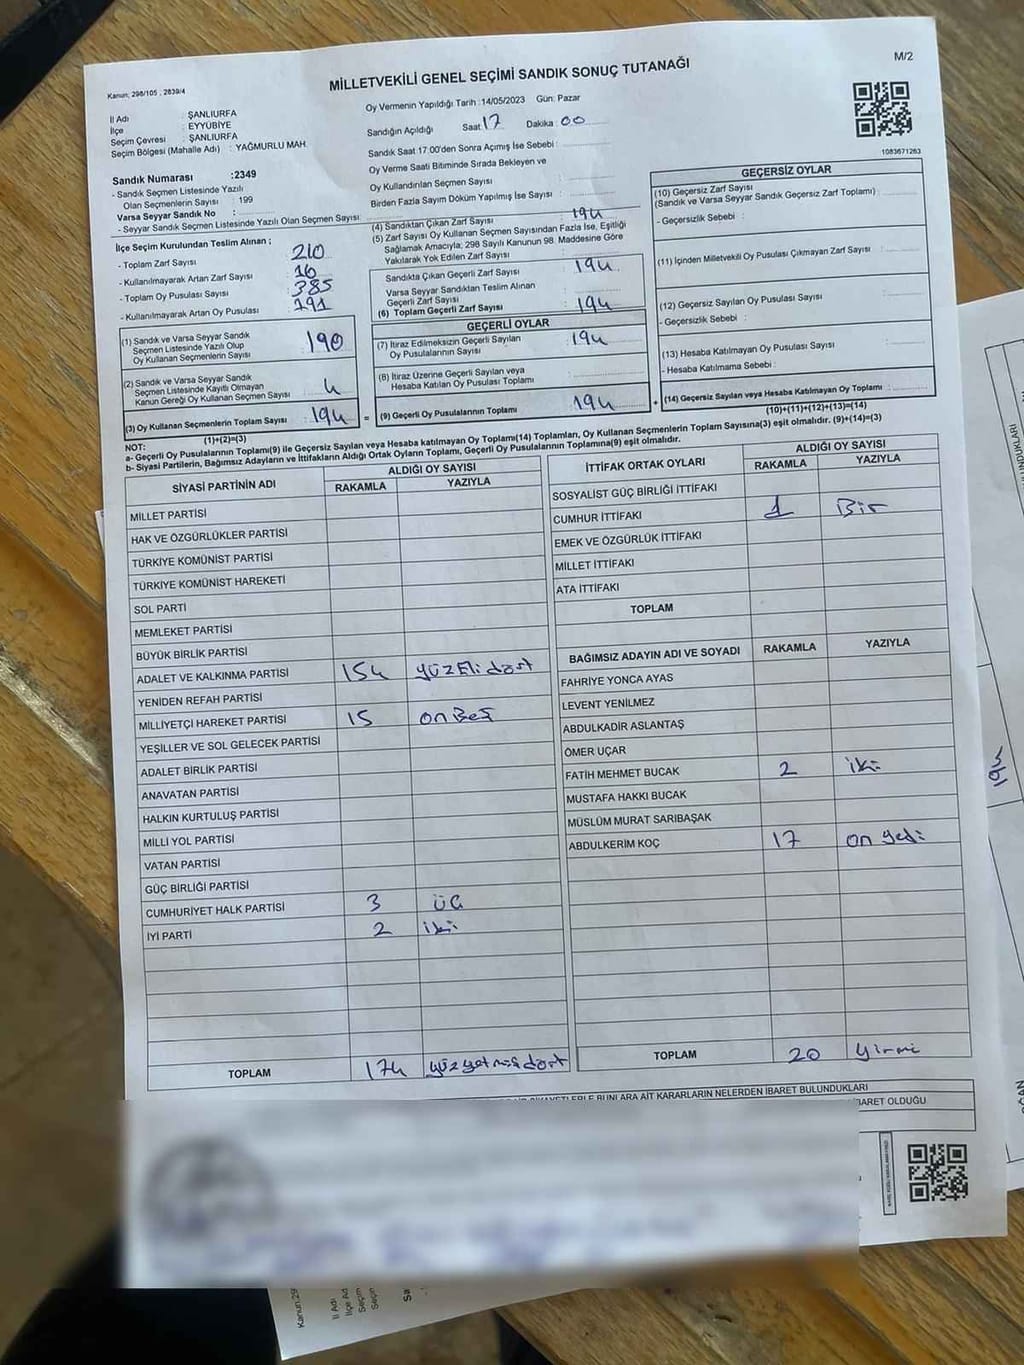 Kanun; 298/105 , 2839/4
MİLLETVEKİLİ GENEL SEÇİMİ SANDIK SONUÇ TUTANAĞI
M/2
İl Adı : ŞANLIURFA
İlçe : EYYÜBİYE
Seçim Çevresi : ŞANLIURFA
Seçim Bölgesi (Mahalle Adı) : YAĞMURLU MAH.
Sandık Numarası :2349
- Sandık Seçmen Listesinde Yazılı
Olan Seçmenlerin Sayısı : 199
Varsa Seyyar Sandık No :
- Seyyar Sandık Seçmen Listesinde Yazılı Olan Seçmen Sayısı:
Oy Vermenin Yapıldığı Tarih :14/05/2023 Gün: Pazar
Sandığın Açıldığı Saat 17 Dakika : 00
Sandık Saat 17:00'den Sonra Açımış İse Sebebi :
Oy Verme Saati Bitiminde Sırada Bekleyen ve
Oy Kullandırılan Seçmen Sayısı :
Birden Fazla Sayım Döküm Yapılmış İse Sayısı :
1083671263
İlçe Seçim Kurulundan Teslim Alınan ;
- Toplam Zarf Sayısı : 210
- Kullanılmayarak Artan Zarf Sayısı : 16
- Toplam Oy Pusulası Sayısı : 385
- Kullanılmayarak Artan Oy Pusulası : 191
(1) Sandık ve Varsa Seyyar Sandık
Seçmen Listesinde Yazılı Olup
Oy Kullanan Seçmenlerin Sayısı : 190
(2) Sandık ve Varsa Seyyar Sandık
Seçmen Listesinde Kayıtlı Olmayan
Kanun Gereği Oy Kullanan Seçmen Sayısı : 4
(3) Oy Kullanan Seçmenlerin Toplam Sayısı : 194 =
(1)+(2)=(3)
(4) Sandıktan Çıkan Zarf Sayısı : 194
(5) Zarf Sayısı Oy Kullanan Seçmen Sayısından Fazla İse, Eşitliği
Sağlamak Amacıyla; 298 Sayılı Kanunun 98. Maddesine Göre
Yakılarak Yok Edilen Zarf Sayısı :
Sandıkta Çıkan Geçerli Zarf Sayısı : 194
Varsa Seyyar Sandıktan Teslim Alınan
Geçerli Zarf Sayısı :
(6) Toplam Geçerli Zarf Sayısı : 194
GEÇERLİ OYLAR
(7) İtiraz Edilmeksizin Geçerli Sayılan
Oy Pusulalarının Sayısı : 194
(8) İtiraz Üzerine Geçerli Sayılan veya
Hesaba Katılan Oy Pusulası Toplamı :
(9) Geçerli Oy Pusulalarının Toplamı : 194 +
GEÇERSİZ OYLAR
(10) Geçersiz Zarf Sayısı
(Sandık ve Varsa Seyyar Sandık Geçersiz Zarf Toplamı) :
- Geçersizlik Sebebi :
(11) İçinden Milletvekili Oy Pusulası Çıkmayan Zarf Sayısı :
(12) Geçersiz Sayılan Oy Pusulası Sayısı :
- Geçersizlik Sebebi :
(13) Hesaba Katılmayan Oy Pusulası Sayısı :
- Hesaba Katılmama Sebebi :
(14) Geçersiz Sayılan veya Hesaba Katılmayan Oy Toplamı :
(10)+(11)+(12)+(13)=(14)
NOT:
a- Geçerli Oy Pusulalarının Toplamı(9) ile Geçersiz Sayılan veya Hesaba katılmayan Oy Toplamı(14) Toplamları, Oy Kullanan Seçmenlerin Toplam Sayısına(3) eşit olmalıdır. (9)+(14)=(3)
b- Siyasi Partilerin, Bağımsız Adayların ve İttifakların Aldığı Ortak Oyların Toplamı, Geçerli Oy Pusulalarının Toplamına(9) eşit olmalıdır.
SİYASİ PARTİNİN ADI ALDIĞI OY SAYISI
RAKAMLA YAZIYLA
MİLLET PARTİSİ
HAK VE ÖZGÜRLÜKLER PARTİSİ
TÜRKİYE KOMÜNİST PARTİSİ
TÜRKİYE KOMÜNİST HAREKETİ
SOL PARTİ
MEMLEKET PARTİSİ
BÜYÜK BİRLİK PARTİSİ
ADALET VE KALKINMA PARTİSİ 154 yüzElidört
YENİDEN REFAH PARTİSİ
MİLLİYETÇİ HAREKET PARTİSİ 15 onBeş
YEŞİLLER VE SOL GELECEK PARTİSİ
ADALET BİRLİK PARTİSİ
ANAVATAN PARTİSİ
HALKIN KURTULUŞ PARTİSİ
MİLLİ YOL PARTİSİ
VATAN PARTİSİ
GÜÇ BİRLİĞİ PARTİSİ
CUMHURİYET HALK PARTİSİ 3 üç
İYİ PARTİ 2 iki
TOPLAM 174 yüzyetmişdört
İTTİFAK ORTAK OYLARI ALDIĞI OY SAYISI
RAKAMLA YAZIYLA
SOSYALİST GÜÇ BİRLİĞİ İTTİFAKI
CUMHUR İTTİFAKI 1 Bir
EMEK VE ÖZGÜRLÜK İTTİFAKI
MİLLET İTTİFAKI
ATA İTTİFAKI
TOPLAM
BAĞIMSIZ ADAYIN ADI VE SOYADI RAKAMLA YAZIYLA
FAHRİYE YONCA AYAS
LEVENT YENİLMEZ
ABDULKADİR ASLANTAŞ
ÖMER UÇAR
FATİH MEHMET BUCAK 2 iki
MUSTAFA HAKKI BUCAK
MÜSLÜM MURAT SARIBAŞAK
ABDULKERİM KOÇ 17 on yedi
TOPLAM 20 yirmi
BUNLARA AİT KARARLARIN NELERDEN İBARET BULUNDUKLARI
İBARET OLDUĞU
BULUNDUKLARI
194
Kanun;29
İl Adı
İlçe Ad
Seçim
Seçim
Sa